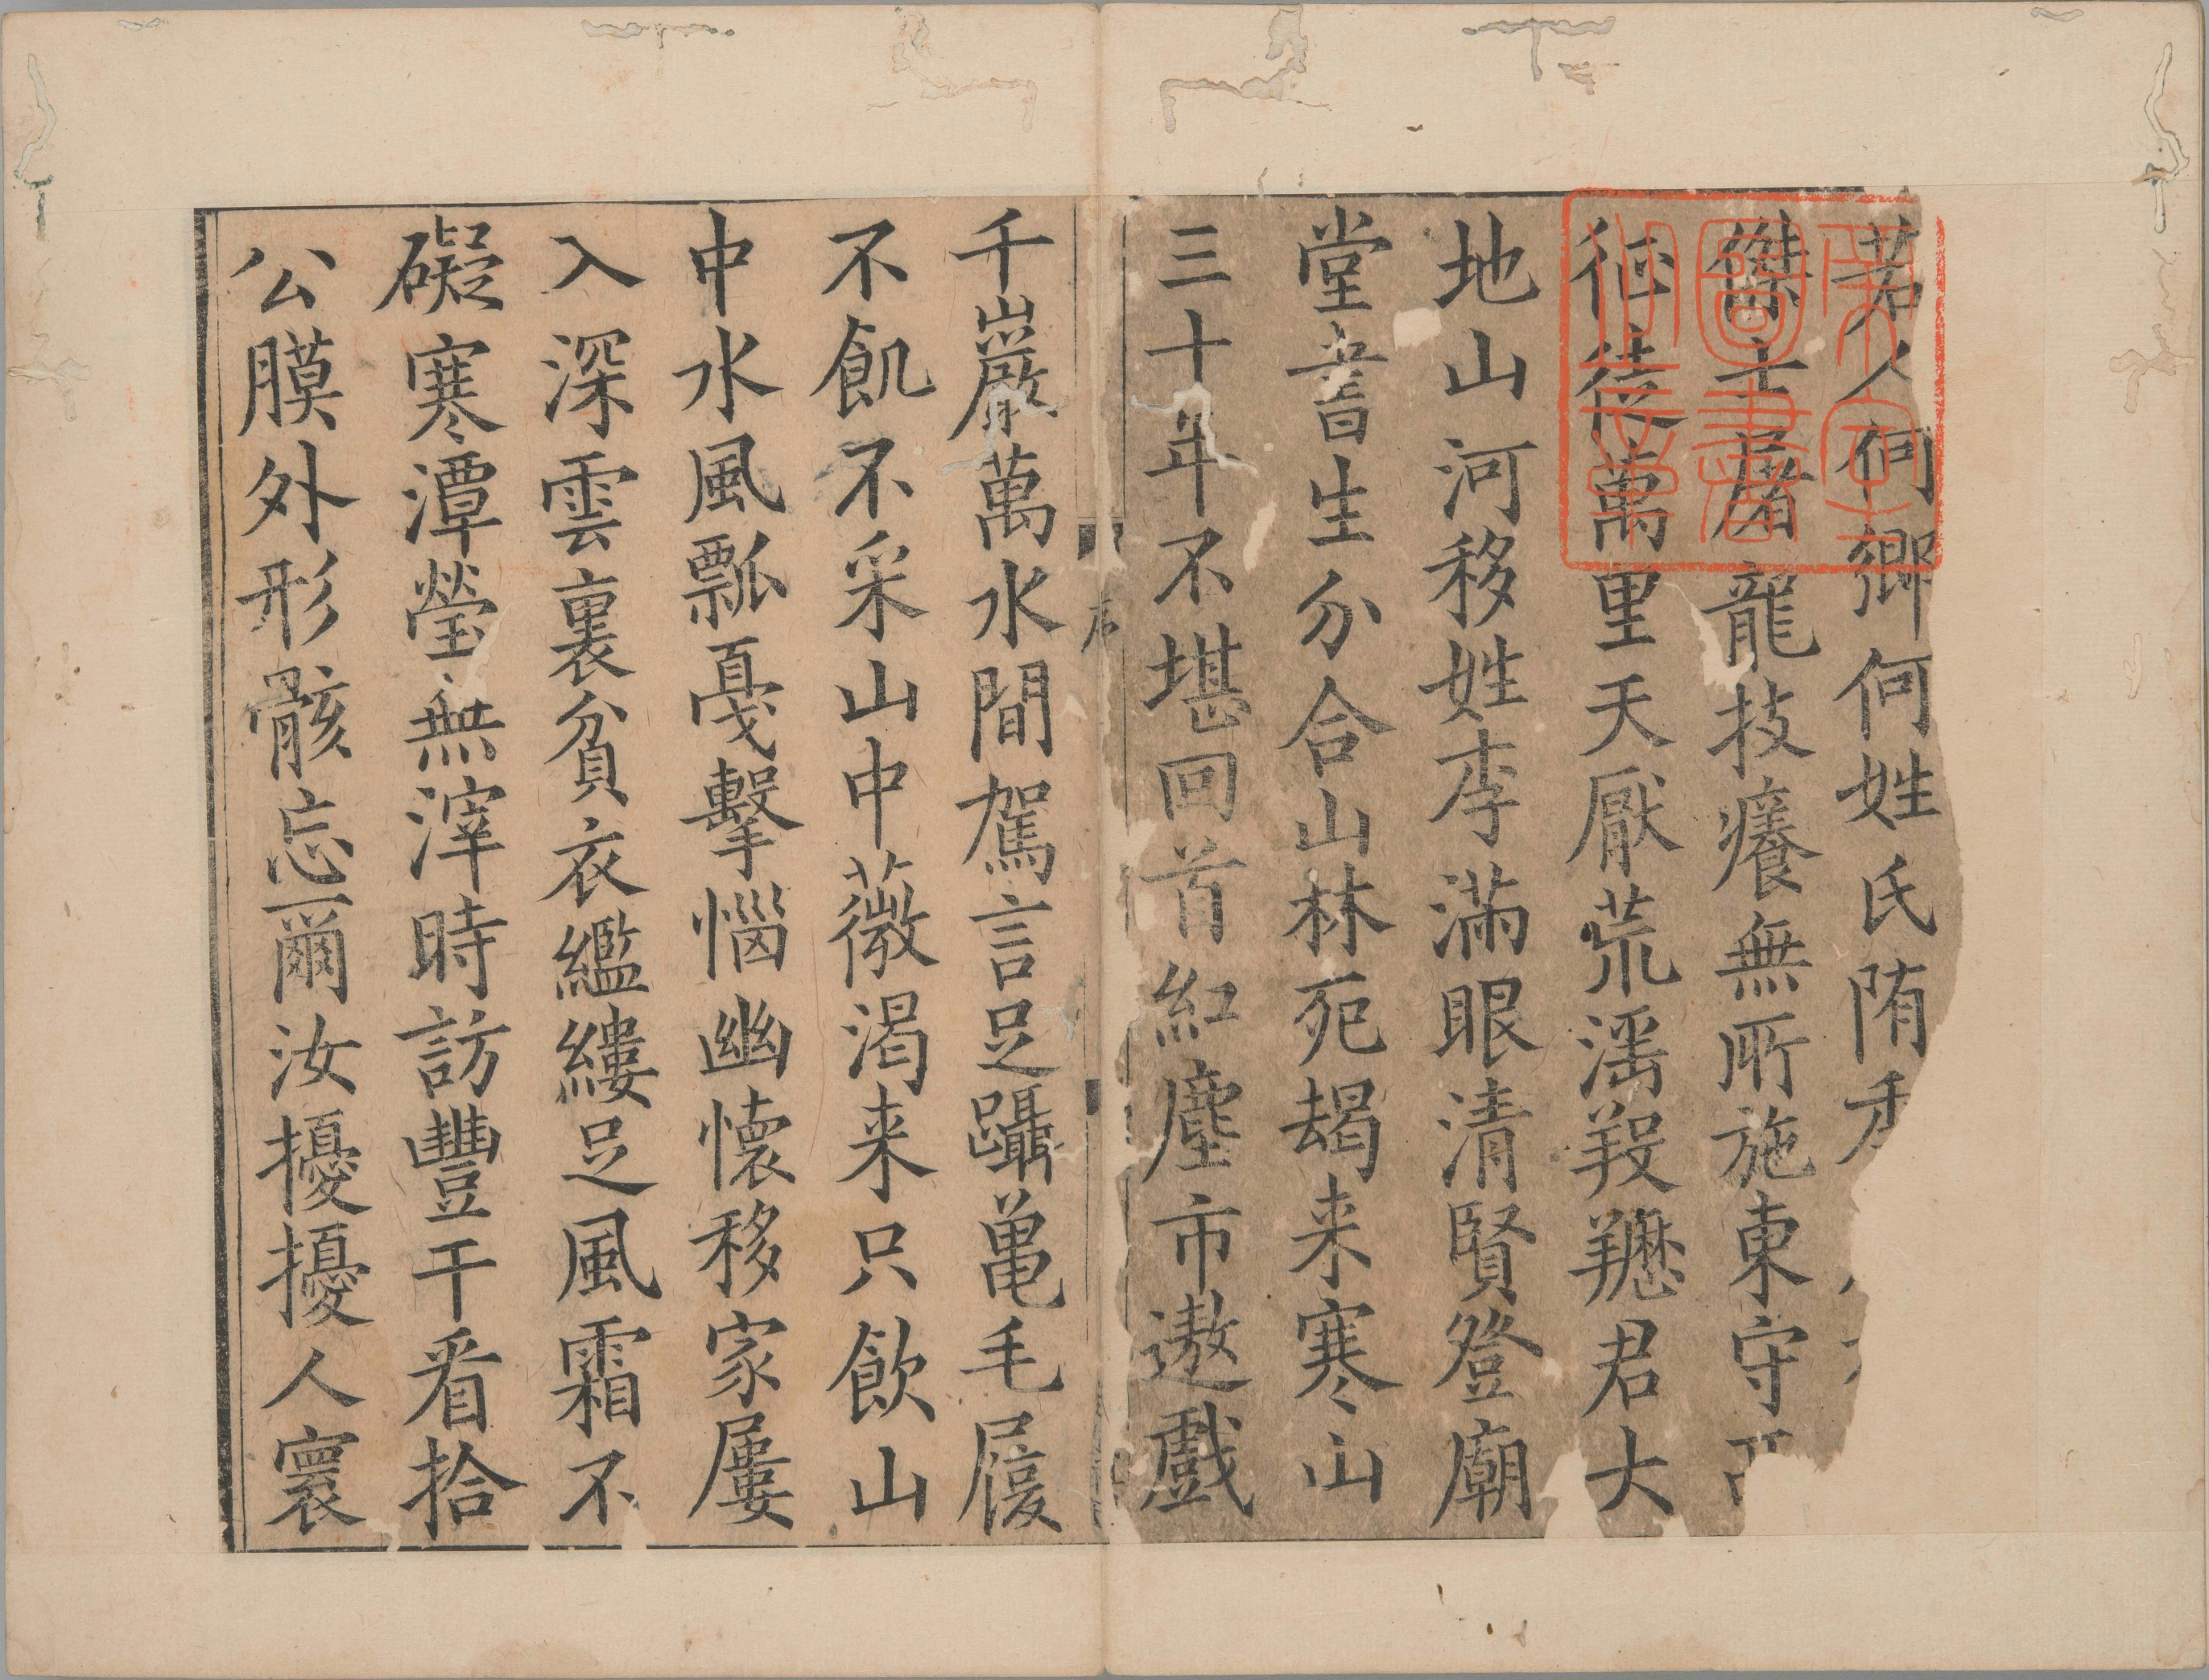 若人何鄉何姓氏隋
傑士屠龍技癢無所施東守
征徒萬里天厭荒滛羖䍽君大
地山河移姓李滿眼清賢登廟
堂書生分合山林死朅来寒山
三十年不堪回首紅塵市遨戲
序
千巖萬水間駕言足躡龜毛屐
不飢不采山中薇渴来只飲山
中水風瓢戛擊惱幽懷移家屢
入深雲裏貧衣繿縷足風霜不
礙寒潭瑩無滓時訪豐干看拾
公膜外形骸忘爾汝擾擾人寰